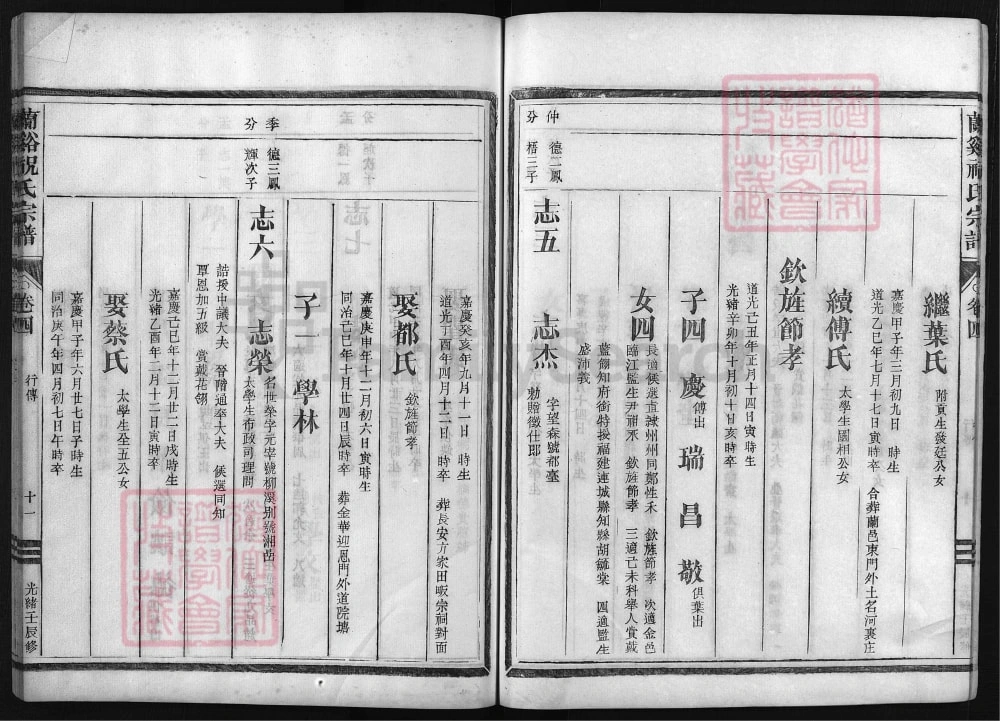 蘭谿祝氏宗譜
卷四
繼葉氏 附貢生發廷公女
嘉慶甲子年三月初九日 時生
道光乙巳年七月十七日寅時卒
合葬蘭邑東門外土名河裏庄
續傅氏 太學生國相公女
欽旌節孝
道光己丑年正月十四日寅時生
光緒辛卯年十月初十日亥時卒
子四 慶 傅出 瑞 昌 敬 俱葉出
女四 長適候選直隸州州同鄭性禾 欽旌節孝 次適金邑
臨江監生尹祖禾 欽旌節孝 三適己未科舉人賞戴
藍翎知府銜特授福建連城縣知縣胡毓棠 四適監生
盛沛義
仲分
德二鳳梧三子
志五 志杰 字望森號都臺
勅贈徵仕郎
嘉慶癸亥年九月十一日 時生
道光丁酉年四月十二日 時卒
葬長安方家田畈宗祠對面
娶都氏 欽旌節孝
嘉慶庚申年十二月初六日寅時生
同治己巳年十月廿四日辰時卒
葬金華迎恩門外道院塘
子一 學林
季分
德三鳳輝次子
志六 志榮 名世榮字元宰號柳溪別號湘嵒
太學生布政司理問
誥授中議大夫 晉贈通奉大夫 候選同知
覃恩加五級 賞戴花翎
嘉慶己巳年十二月廿二日戌時生
光緒乙酉年二月十二日寅時卒
娶蔡氏 太學生全五公女
嘉慶甲子年六月廿七日子時生
同治庚午年四月初七日午時卒
蘭谿祝氏宗譜
卷四
行傳
十一
光緒壬辰修